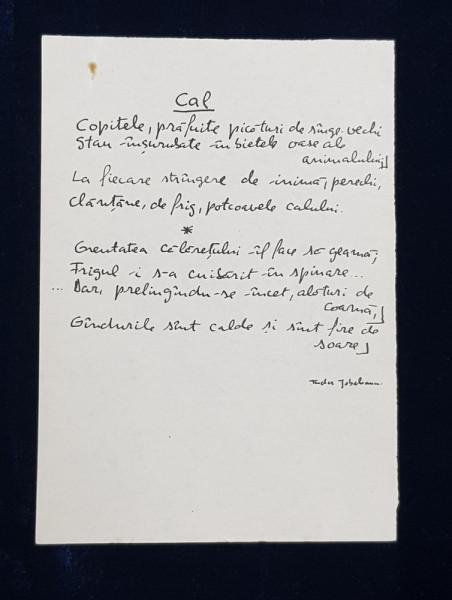 Cal
Copitele, prăfuite picături de sînge vechi
Stau înșurubate în bietele oase ale
animalului;]
La fiecare strîngere de inimă, perechi,
clănțăne, de frig, potcoavele calului.
*
Greutatea călărețului îl face să geamă;
Frigul i s-a cuibărit în spinare...
... Dar, prelingîndu-se încet, alături de
coamă,]
Gîndurile sînt calde și sînt fire de
soare]